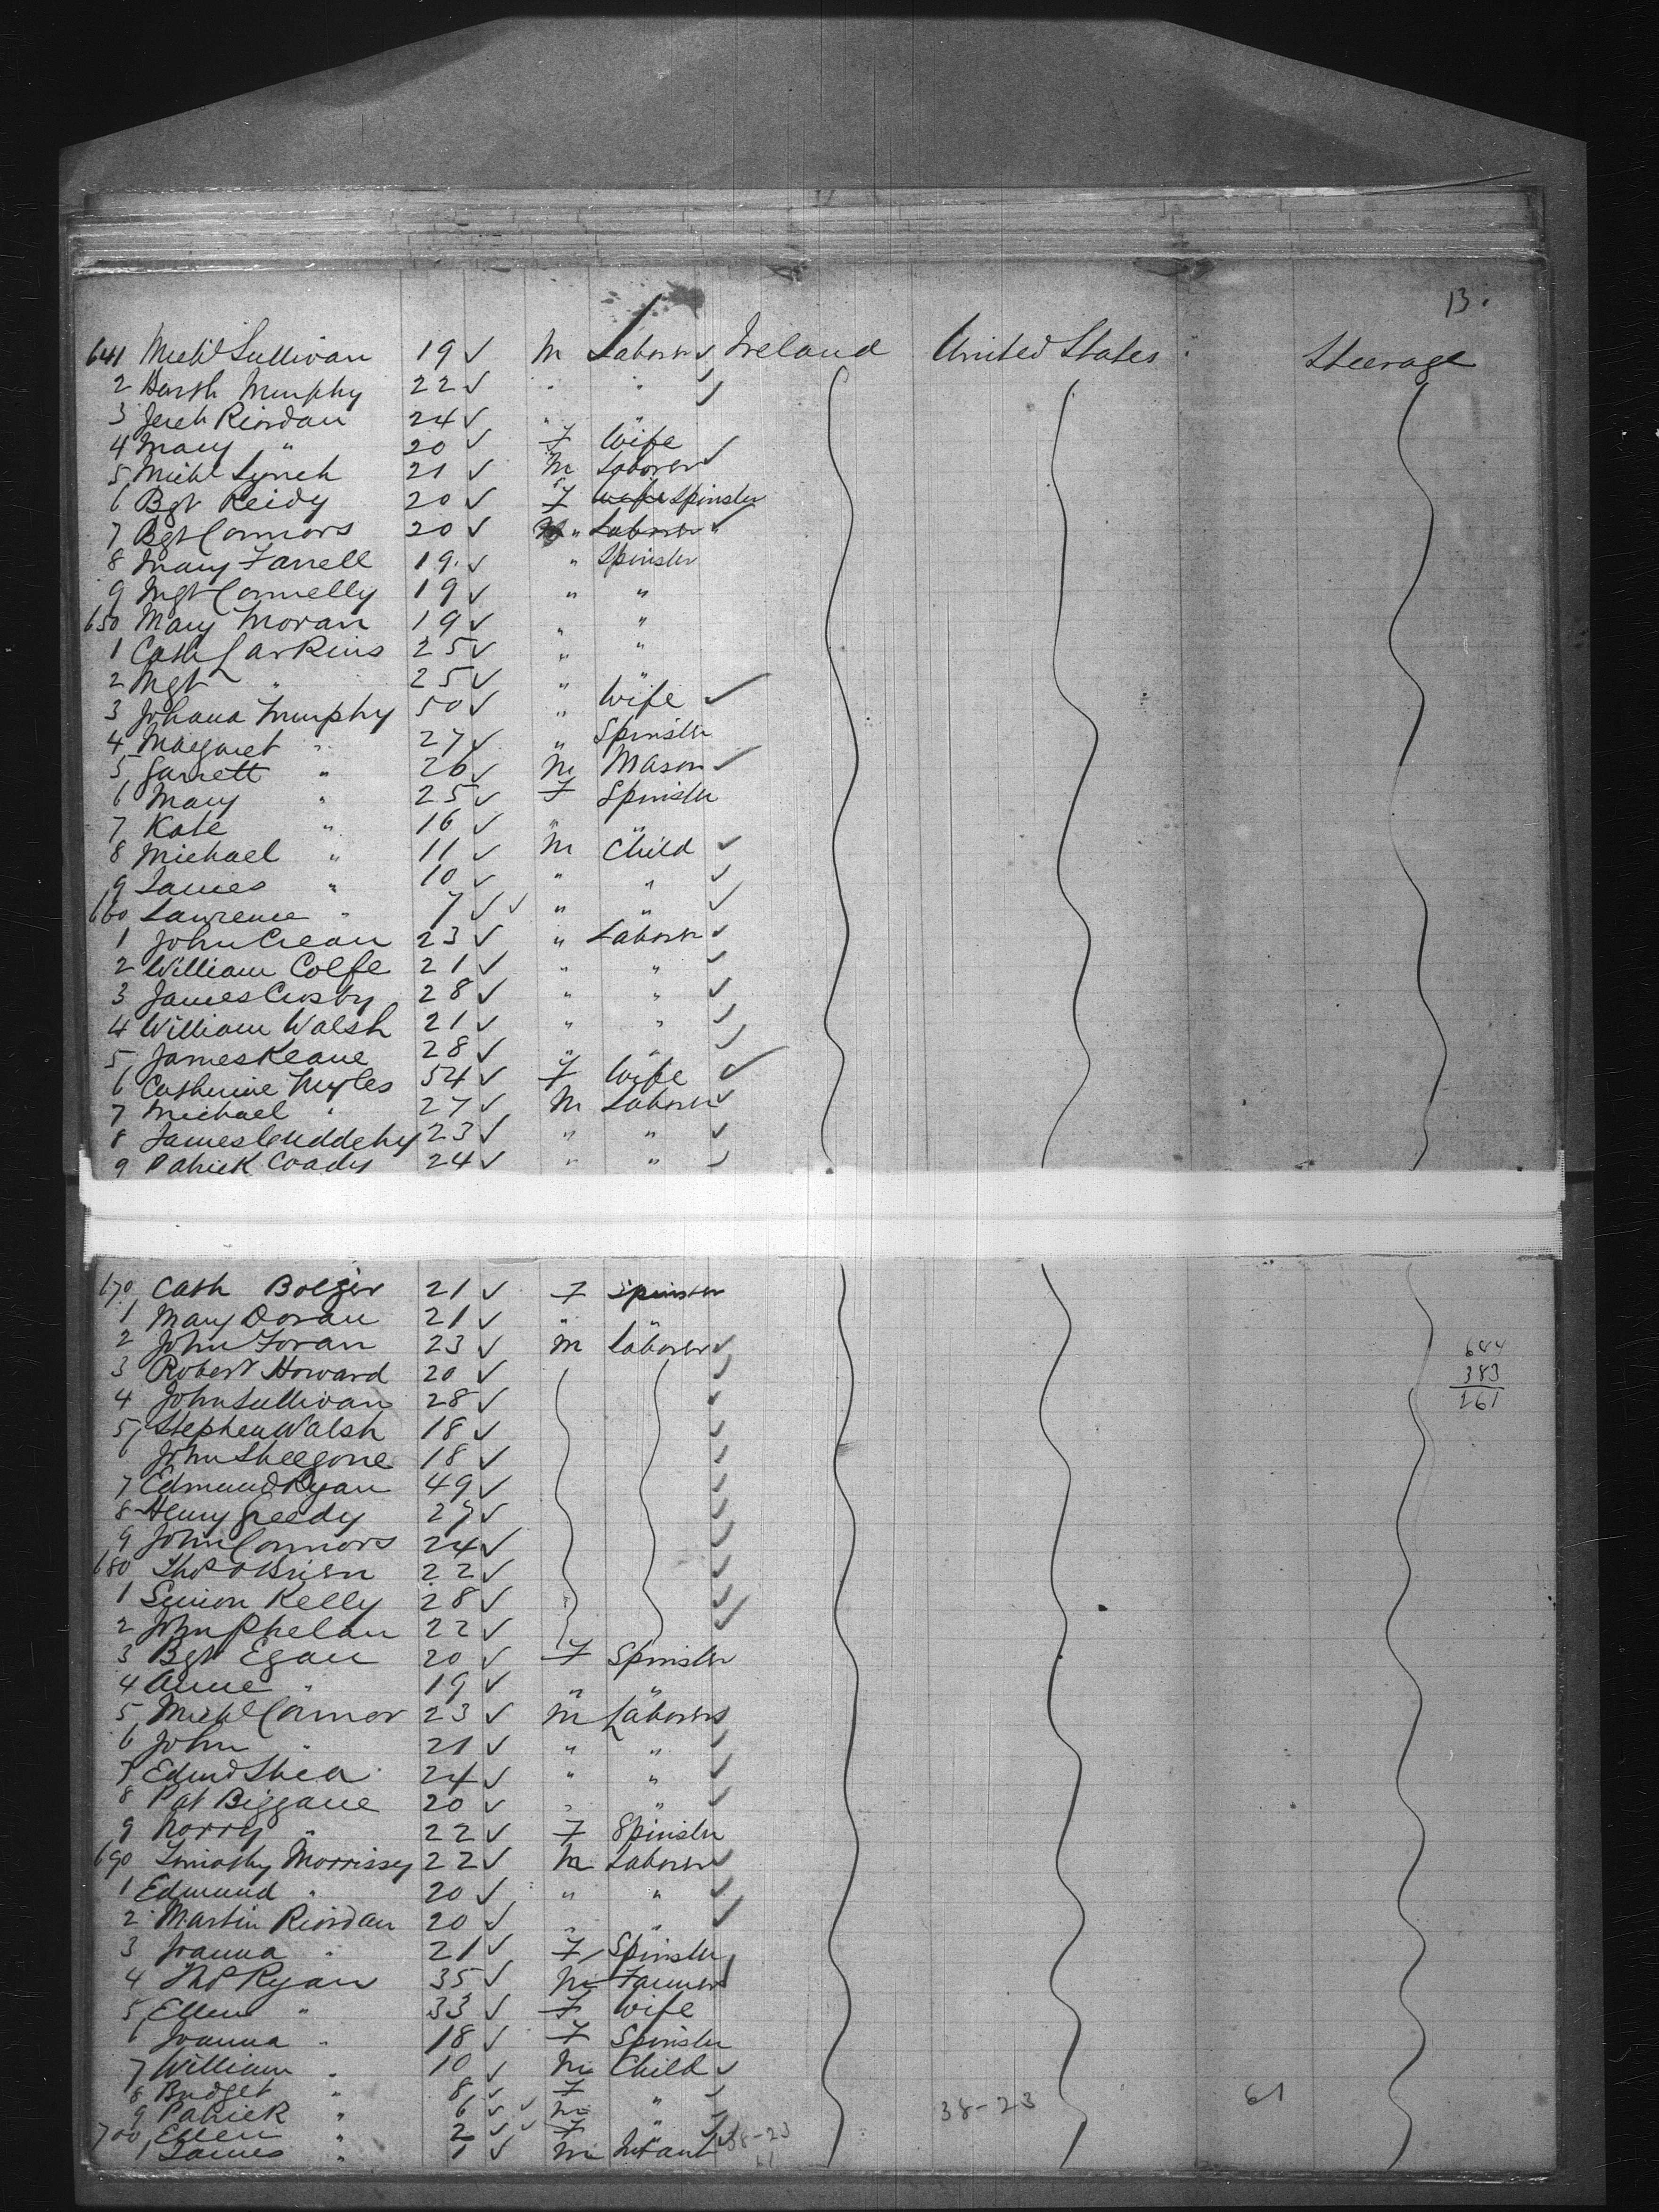 13.
641 Michl Sullivan 19 ✓ M Laborer ✓ Ireland United States Steerage
2 Murphy 22 ✓ " " ✓
3 Jereh Riordan 24 ✓ " "
4 Mary " 20 ✓ F Wife ✓
5 Michl Lynch 21 ✓ M Laborer ✓
6 Bgt Reidy 20 ✓ F Wife Spinster
7 Bgt Connors 20 ✓ " Laborer " ✓
8 Mary Farrell 19 ✓ " Spinster
9 Mgt Connelly 19 ✓ " "
650 Mary Moran 19 ✓ " "
1 Cath Larkins 25 ✓ " "
2 Mgt " 25 ✓ "
3 Johana Murphy 50 ✓ " Wife ✓
4 Margaret " 27 ✓ " Spinster
5 Garrett " 26 ✓ M Mason ✓
6 Mary " 25 ✓ F Spinster
7 Kate " 16 ✓ " "
8 Michael " 11 ✓ M Child ✓
9 James " 10 ✓ " " ✓
660 Lawrence " 7 ✓ ✓ " " ✓
1 John Crean 23 ✓ " Laborer ✓
2 William Colfe 21 ✓ " " ✓
3 James Crosby 28 ✓ " " ✓
4 William Walsh 21 ✓ " " ✓
5 James Keane 28 ✓ " " ✓
6 Catherine Myles 54 ✓ F Wife ✓
7 Michael " 27 ✓ M Laborer ✓
8 James Cuddehy 23 ✓ " " ✓
9 Patrick Coady 24 ✓ " " ✓
670 Cath Bolger 21 ✓ F Spinster
1 Mary Doran 21 ✓ " "
2 John Foran 23 ✓ M Laborer ✓ 644
3 Robert Howard 20 ✓ ✓ 383
4 John Sullivan 28 ✓ ✓ 261
5 Stephen Walsh 18 ✓ ✓
6 John Sheegone 18 ✓ ✓
7 Edmund Ryan 49 ✓ ✓
8 Henry Greedy 27 ✓ ✓
9 John Connors 24 ✓ ✓
680 Thos OBrien 22 ✓ ✓
1 Simon Kelly 28 ✓ ✓
2 John Phelan 22 ✓ ✓
3 Bgt Egan 20 ✓ F Spinster
4 Anne " 19 ✓ " "
5 Michl Connor 23 ✓ M Laborer ✓
6 John " 21 ✓ " " ✓
7 Edmd Shea 24 ✓ " " ✓
8 Pat Biggane 20 ✓ " " ✓
9 Norry " 22 ✓ F Spinster
690 Timothy Morrissy 22 ✓ M Laborer ✓
1 Edmund " 20 ✓ " " ✓
2 Martin Riordan 20 ✓ " " ✓
3 Joanna " 21 ✓ F Spinster
4 Thos Ryan 35 ✓ M Farmer ✓
5 Ellen " 33 ✓ F Wife
6 Joanna " 18 ✓ F Spinster
7 William " 10 ✓ M Child ✓
8 Bridget " 8 ✓ F " ✓
9 Patrick " 6 ✓ ✓ M " ✓ 38-23 61
700 Ellen " 2 ✓ ✓ F " ✓ 38-23
1 James " 1 ✓ M Infant ✓ 61